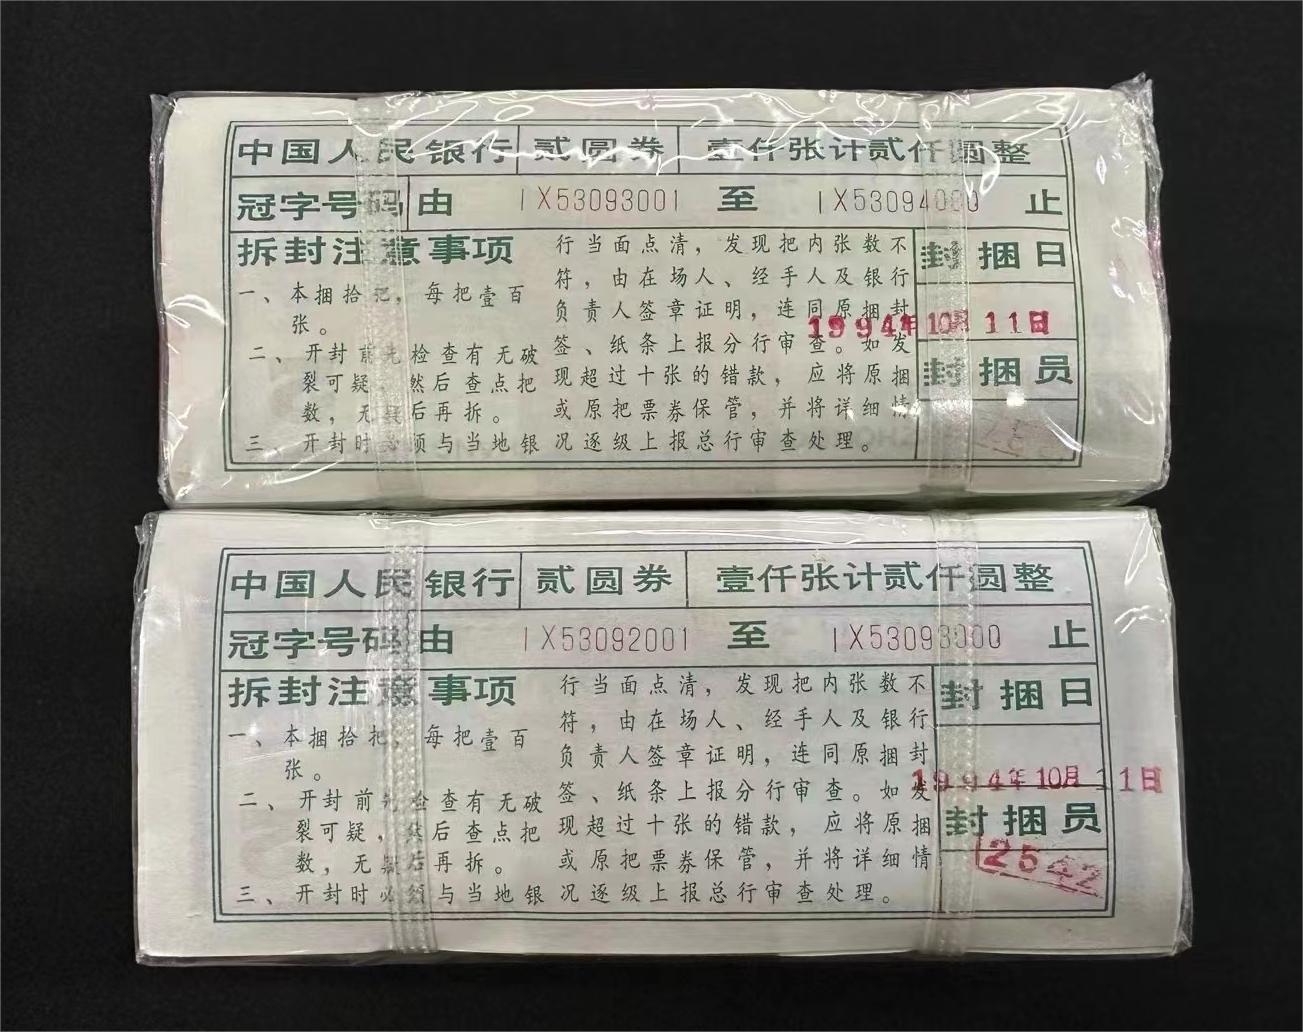 中国人民银行 贰圆券 壹仟张计贰仟圆整
冠字号码 由 IX53093001 至 IX53094000 止
拆封注意事项
一、本捆拾把，每把壹百
张。
二、开封前先检查有无破
裂可疑，然后查点把
数，无疑后再拆。
三、开封时必须与当地银
行当面点清，发现把内张数不
符，由在场人、经手人及银行
负责人签章证明，连同原捆封
签、纸条上报分行审查。如发
现超过十张的错款，应将原捆
或原把票券保管，并将详细情
况逐级上报总行审查处理。
封捆日
1994年10月11日
封捆员
中国人民银行 贰圆券 壹仟张计贰仟圆整
冠字号码 由 IX53092001 至 IX53093000 止
拆封注意事项
一、本捆拾把，每把壹百
张。
二、开封前先检查有无破
裂可疑，然后查点把
数，无疑后再拆。
三、开封时必须与当地银
行当面点清，发现把内张数不
符，由在场人、经手人及银行
负责人签章证明，连同原捆封
签、纸条上报分行审查。如发
现超过十张的错款，应将原捆
或原把票券保管，并将详细情
况逐级上报总行审查处理。
封捆日
1994年10月11日
封捆员
2542